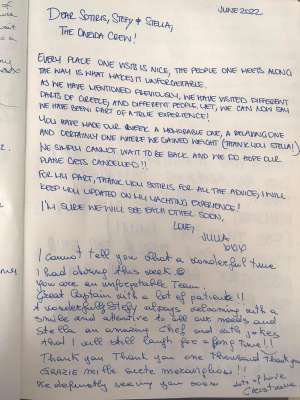 JUNE 2022
DEAR SOTIRIS, STEFY & STELLA,
THE ONEIDA CREW!
EVERY PLACE ONE VISITS IS NICE, THE PEOPLE ONE MEETS ALONG
THE WAY IS WHAT MAKES IT UNFORGETTABLE.
AS WE HAVE MENTIONED PREVIOUSLY, WE HAVE VISITED DIFFERENT
PARTS OF GREECE, AND DIFFERENT PEOPLE. YET, WE CAN NOW SAY
WE HAVE BEEN PART OF A TRUE EXPERIENCE!
YOU HAVE MADE OUR WEEK A MEMORABLE ONE, A RELAXING ONE
AND CERTAINLY ONE WHERE WE GAINED WEIGHT (THANK YOU STELLA!)
WE SIMPLY CANNOT WAIT TO BE BACK AND WE DO HOPE OUR
PLANE GETS CANCELLED!!
FOR MY PART, THANK YOU SOTIRIS FOR ALL THE ADVICE, I WILL
KEEP YOU UPDATED ON MY YACHTING EXPERIENCE!
I'M SURE WE WILL SEE EACH OTHER SOON,
LOVE,
JULIA
XOXO
I cannot tell you what a wonderful time
I had during this week.
You are an unforgettable Team.
Great Captain with a lot of patience!!
A wonderful Stefy always welcoming with a
smile and attentive to all our needs and
Stella an amazing Chef and with jokes
that I will still laugh for a long time!!
Thank you Thank you one thousand Thank you
GRAZIE mille
We definitely seeing you soon
Lots of love